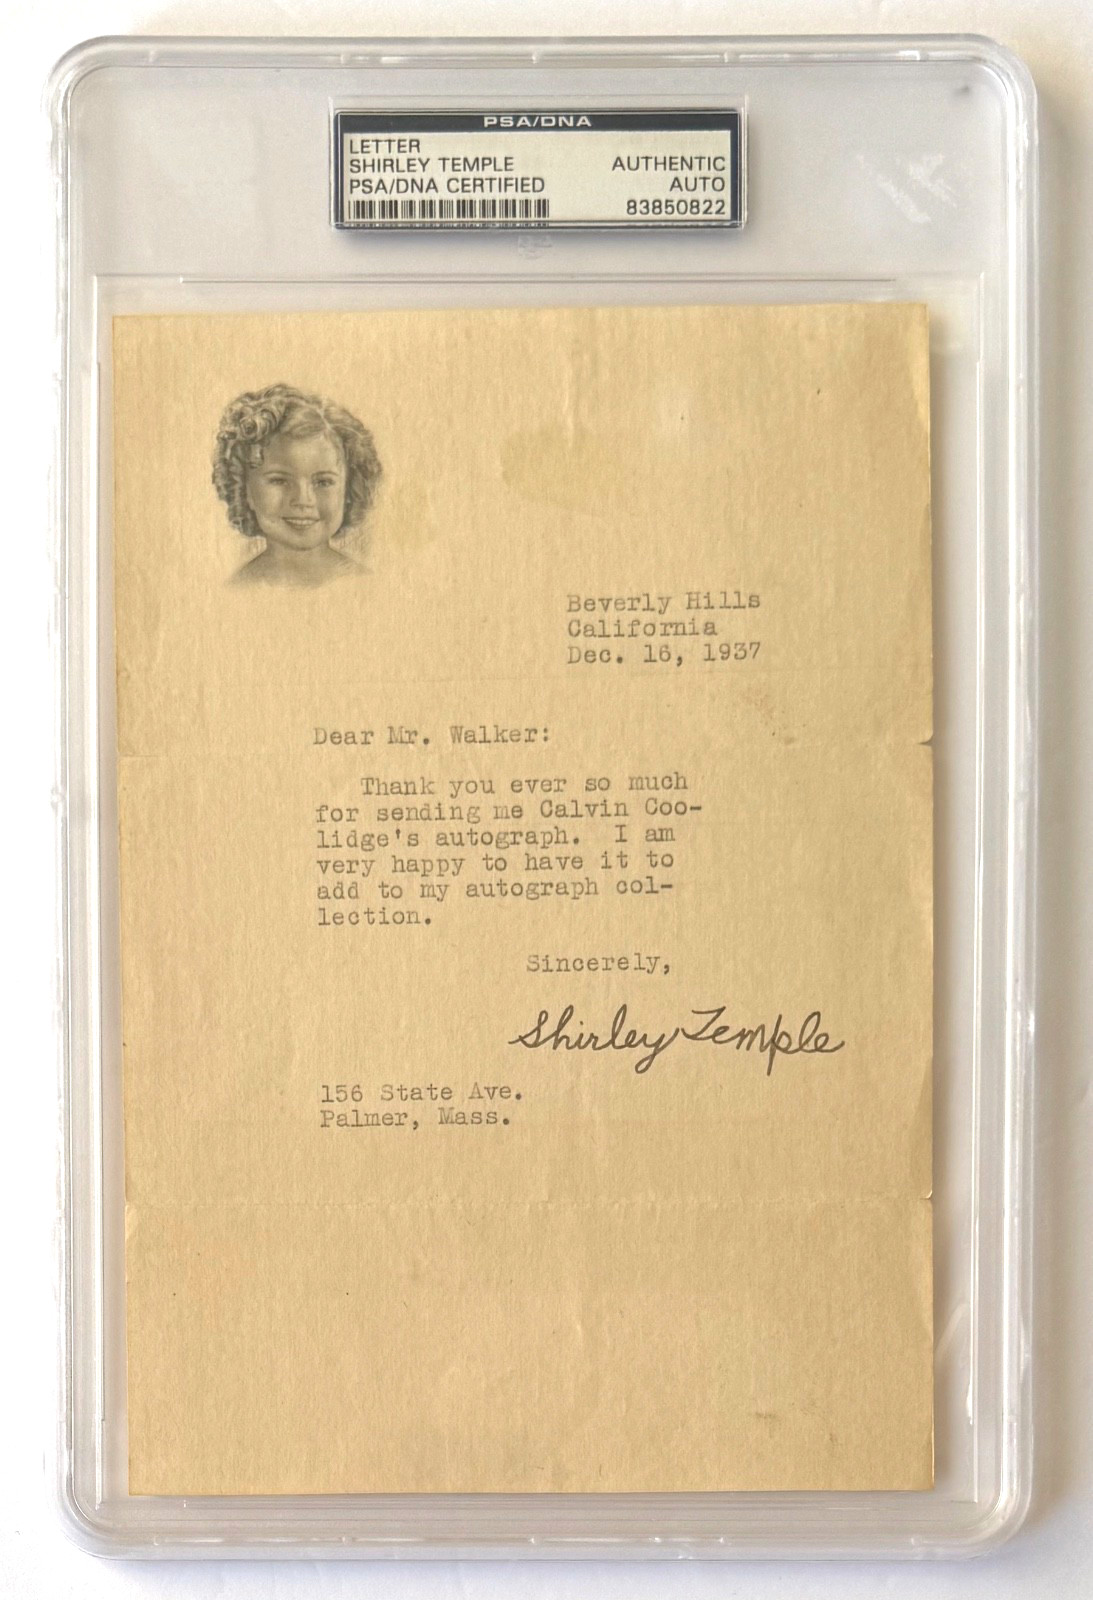 PSA/DNA
LETTER
SHIRLEY TEMPLE AUTHENTIC
PSA/DNA CERTIFIED AUTO
83850822
Beverly Hills
California
Dec. 16, 1937
Dear Mr. Walker:
Thank you ever so much
for sending me Calvin Coo-
lidge's autograph. I am
very happy to have it to
add to my autograph col-
lection.
Sincerely,
Shirley Temple
156 State Ave.
Palmer, Mass.